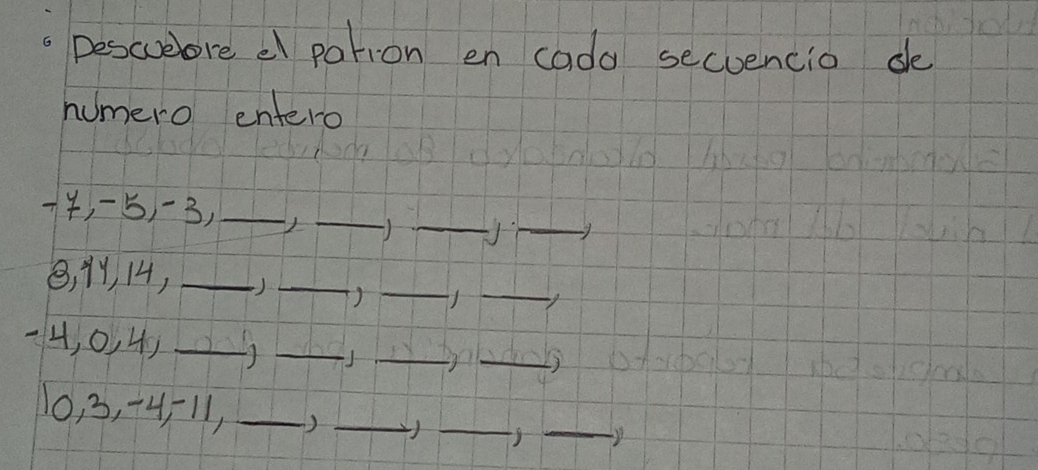 Descuebre el patron en cada secuencia de
numero entero
-7,-5,-3,___, ___, ___, ___,
8,11,14, ___, ___, ___, ___,
-4,0,4, ___, ___, ___, ___,
10,3,-4,-11, ___, ___, ___, ___,